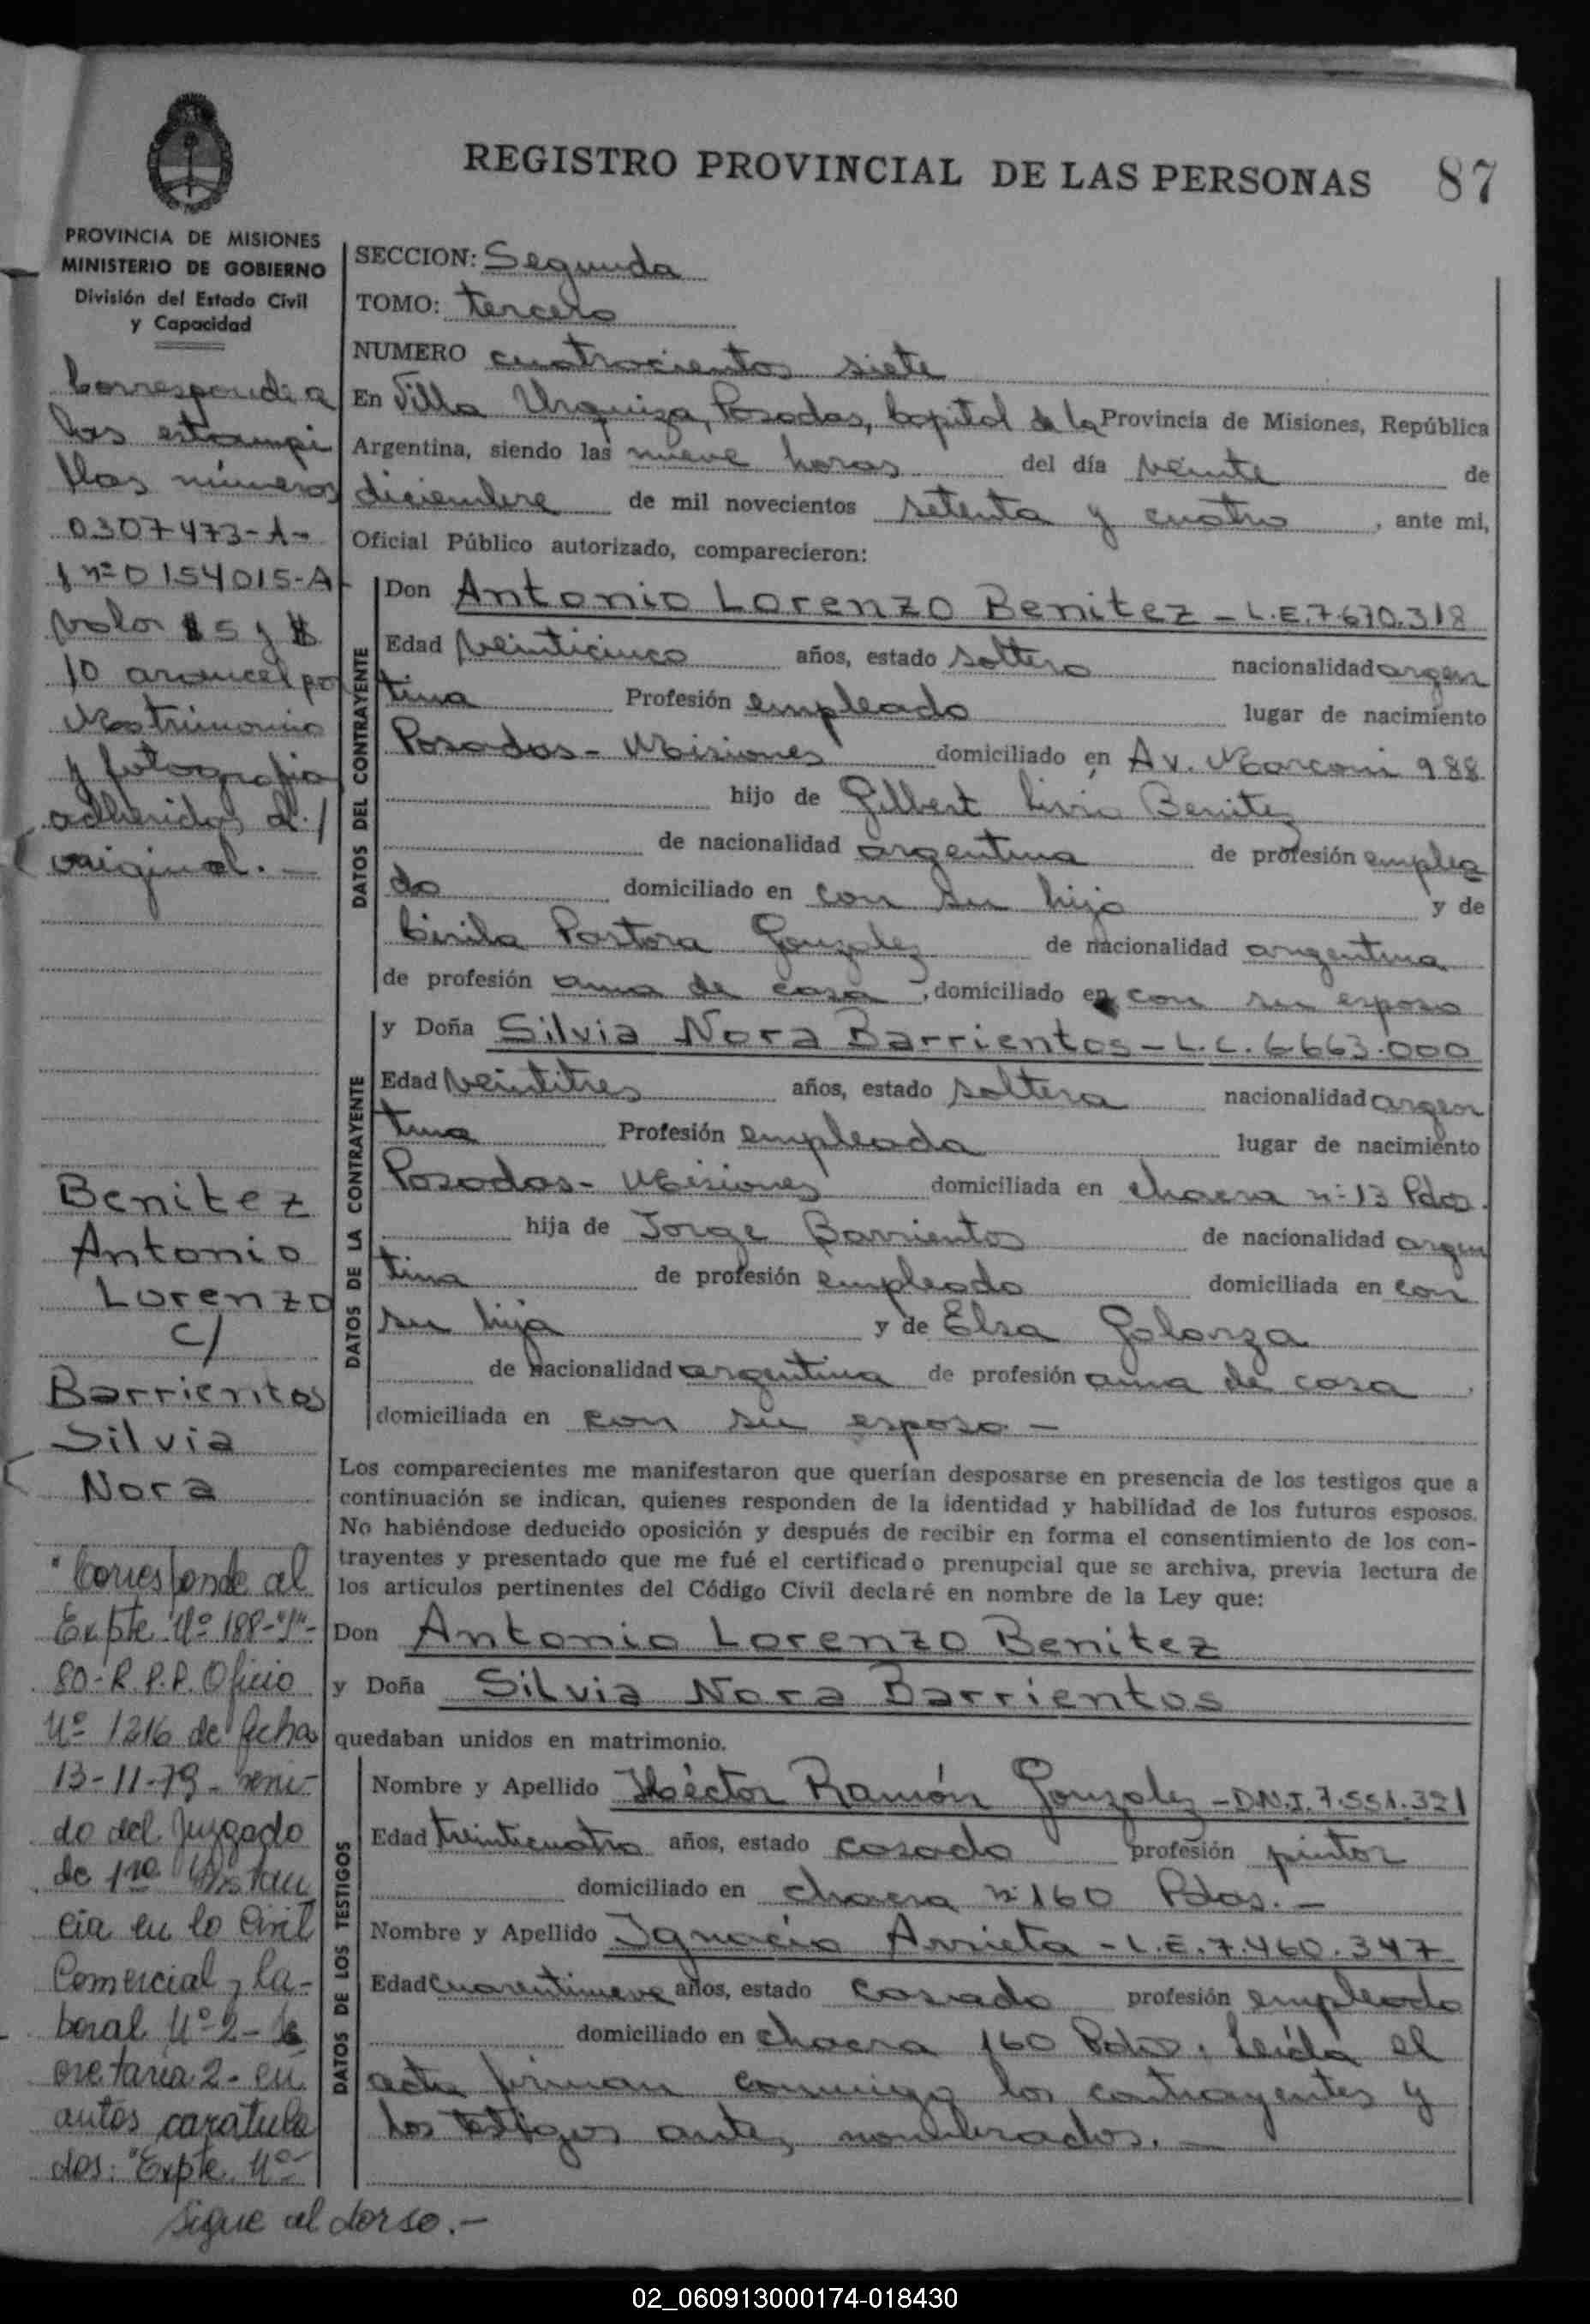 REGISTRO PROVINCIAL DE LAS PERSONAS 87
PROVINCIA DE MISIONES
MINISTERIO DE GOBIERNO
División del Estado Civil
y Capacidad
Corresponde a
las estampi
llas números
0307473-A-
y nº 0154015-A-
valor $ 5 y $
10 arancel por
Matrimonio
y fotografia
adheridas al /
original. —
Benitez
Antonio
Lorenzo
c/
Barrientos
Silvia
Nora
"Corresponde al
Expte. Nº 188-"J"-
80-R.P.P. Oficio
Nº 1216 de fecha
13-11-79- veni-
do del Juzgado
de 1ra Instan
cia en lo Civil
Comercial y La-
boral Nº 2- Se
cretaría 2- en
autos caratula
dos: "Expte. Nº
Sigue al dorso.-
SECCION: Segunda
TOMO: tercero
NUMERO cuatrocientos siete
En Villa Urquiza, Posadas, Capital de la Provincia de Misiones, República
Argentina, siendo las nueve horas del día veinte de
diciembre de mil novecientos setenta y cuatro, ante mi,
Oficial Público autorizado, comparecieron:
DATOS DEL CONTRAYENTE
Don Antonio Lorenzo Benitez - L.E. 7.670.318
Edad veinticinco años, estado soltero nacionalidad argen
tina Profesión empleado lugar de nacimiento
Posadas - Misiones domiciliado en Av. Marconi 988
hijo de Gilbert Livio Benitez
de nacionalidad argentina de profesión emplea
do domiciliado en con su hijo y de
Cirila Pastora Gonzalez de nacionalidad argentina
de profesión ama de casa, domiciliado en con su esposo
DATOS DE LA CONTRAYENTE
y Doña Silvia Nora Barrientos - L.C. 6.663.000
Edad veintitres años, estado soltera nacionalidad argen
tina Profesión empleada lugar de nacimiento
Posadas - Misiones domiciliada en chacra nº 13 Pdas.
hija de Jorge Barrientos de nacionalidad argen
tina de profesión empleado domiciliada en con
su hija y de Elsa Galarza
de nacionalidad argentina de profesión ama de casa,
domiciliada en con su esposo -
Los comparecientes me manifestaron que querían desposarse en presencia de los testigos que a
continuación se indican, quienes responden de la identidad y habilidad de los futuros esposos.
No habiéndose deducido oposición y después de recibir en forma el consentimiento de los con-
trayentes y presentado que me fué el certificado prenupcial que se archiva, previa lectura de
los artículos pertinentes del Código Civil declaré en nombre de la Ley que:
Don Antonio Lorenzo Benitez
y Doña Silvia Nora Barrientos
quedaban unidos en matrimonio.
DATOS DE LOS TESTIGOS
Nombre y Apellido Héctor Ramón Gonzalez - D.N.I. 7.551.321
Edad treinticuatro años, estado casado profesión pintor
domiciliado en chacra nº 160 Pdas. -
Nombre y Apellido Ignacio Arrieta - L.E. 7.460.347
Edad cuarentinueve años, estado casado profesión empleado
domiciliado en chacra 160 Pdas. Leída el
acta firman conmigo los contrayentes y
los testigos antes nombrados. -
02_060913000174-018430